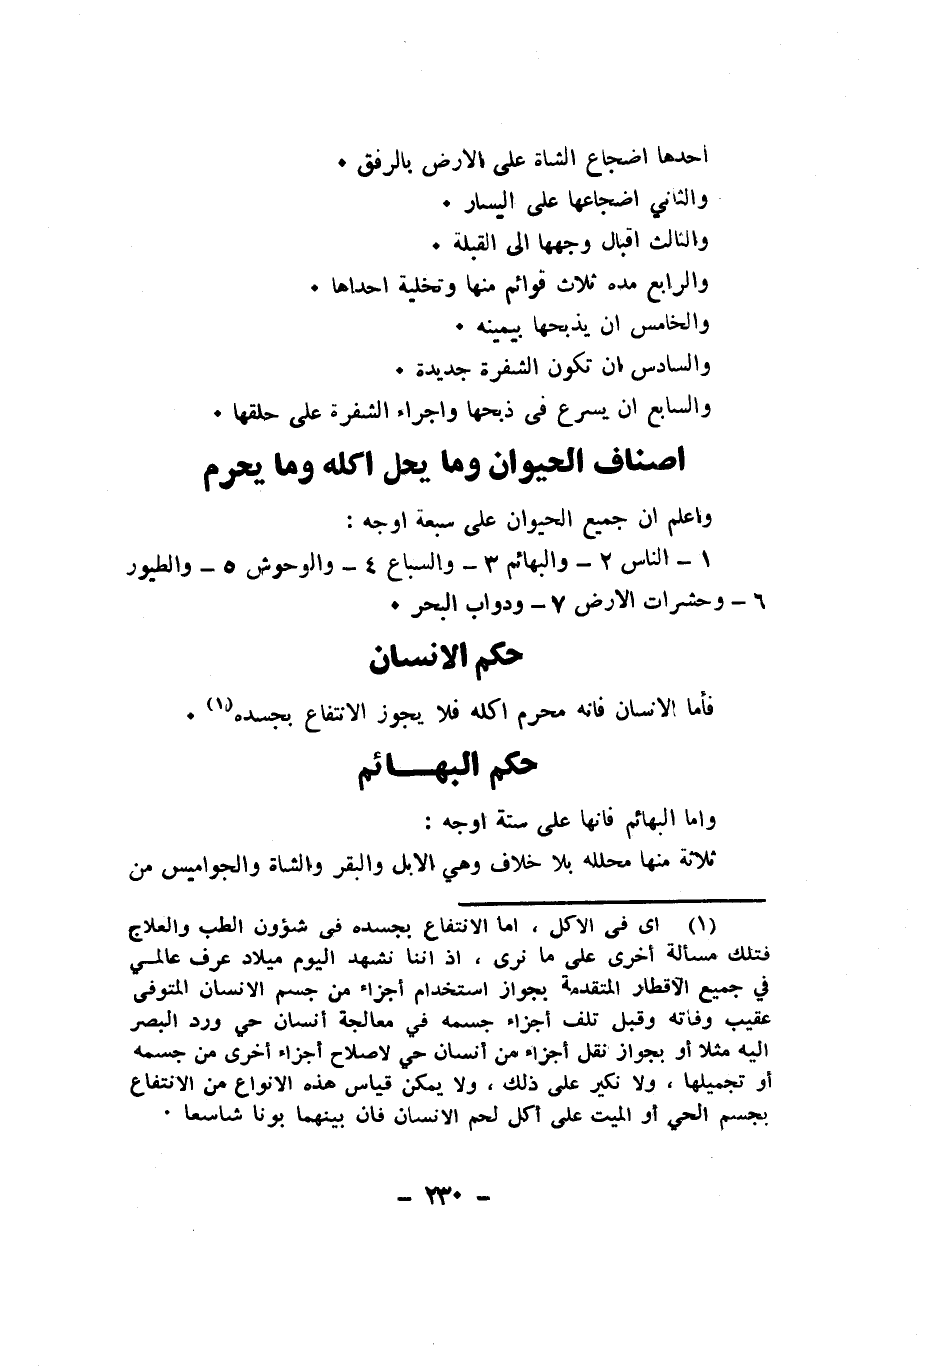 احدها اضجاع الشاة على الارض بالرفق ٠
والثاني اضجاعها على اليسار ٠
والثالث اقبال وجهها الى القبلة ٠
والرابع مده ثلاث قوائم منها وتخلية احداها ٠
والخامس ان يذبحها بيمينه ٠
والسادس ان تكون الشفرة جديدة ٠
والسابع ان يسرع فى ذبحها واجراء الشفرة على حلقها ٠
اصناف الحيوان وما يحل اكله وما يحرم
واعلم ان جميع الحيوان على سبعة اوجه :
١ – الناس ٢ – والبهائم ٣ – والسباع ٤ – والوحوش ٥ – والطيور
٦ – وحشرات الارض ٧ – ودواب البحر ٠
حكم الانسان
فأما الانسان فانه محرم اكله فلا يجوز الانتفاع بجسده(١) ٠
حكم البهـــائم
واما البهائم فانها على ستة اوجه :
ثلاثة منها محلله بلا خلاف وهي الابل والبقر والشاة والجواميس من
(١) اى فى الاكل ، اما الانتفاع بجسده فى شؤون الطب والعلاج
فتلك مسألة أخرى على ما نرى ، اذ اننا نشهد اليوم ميلاد عرف عالمـي
في جميع الآقطار المتقدمة بجواز استخدام أجزاء من جسم الانسان المتوفى
عقيب وفاته وقبل تلف أجزاء جسمه في معالجة أنسان حي ورد البصر
اليه مثلا أو بجواز نقل أجزاء من أنسان حي لاصلاح أجزاء أخرى من جسمه
أو تجميلها ، ولا نكير على ذلك ، ولا يمكن قياس هذه الانواع من الانتفاع
بجسم الحي أو الميت على أكل لحم الانسان فان بينهما بونا شاسعا ٠
– ٢٣٠ –